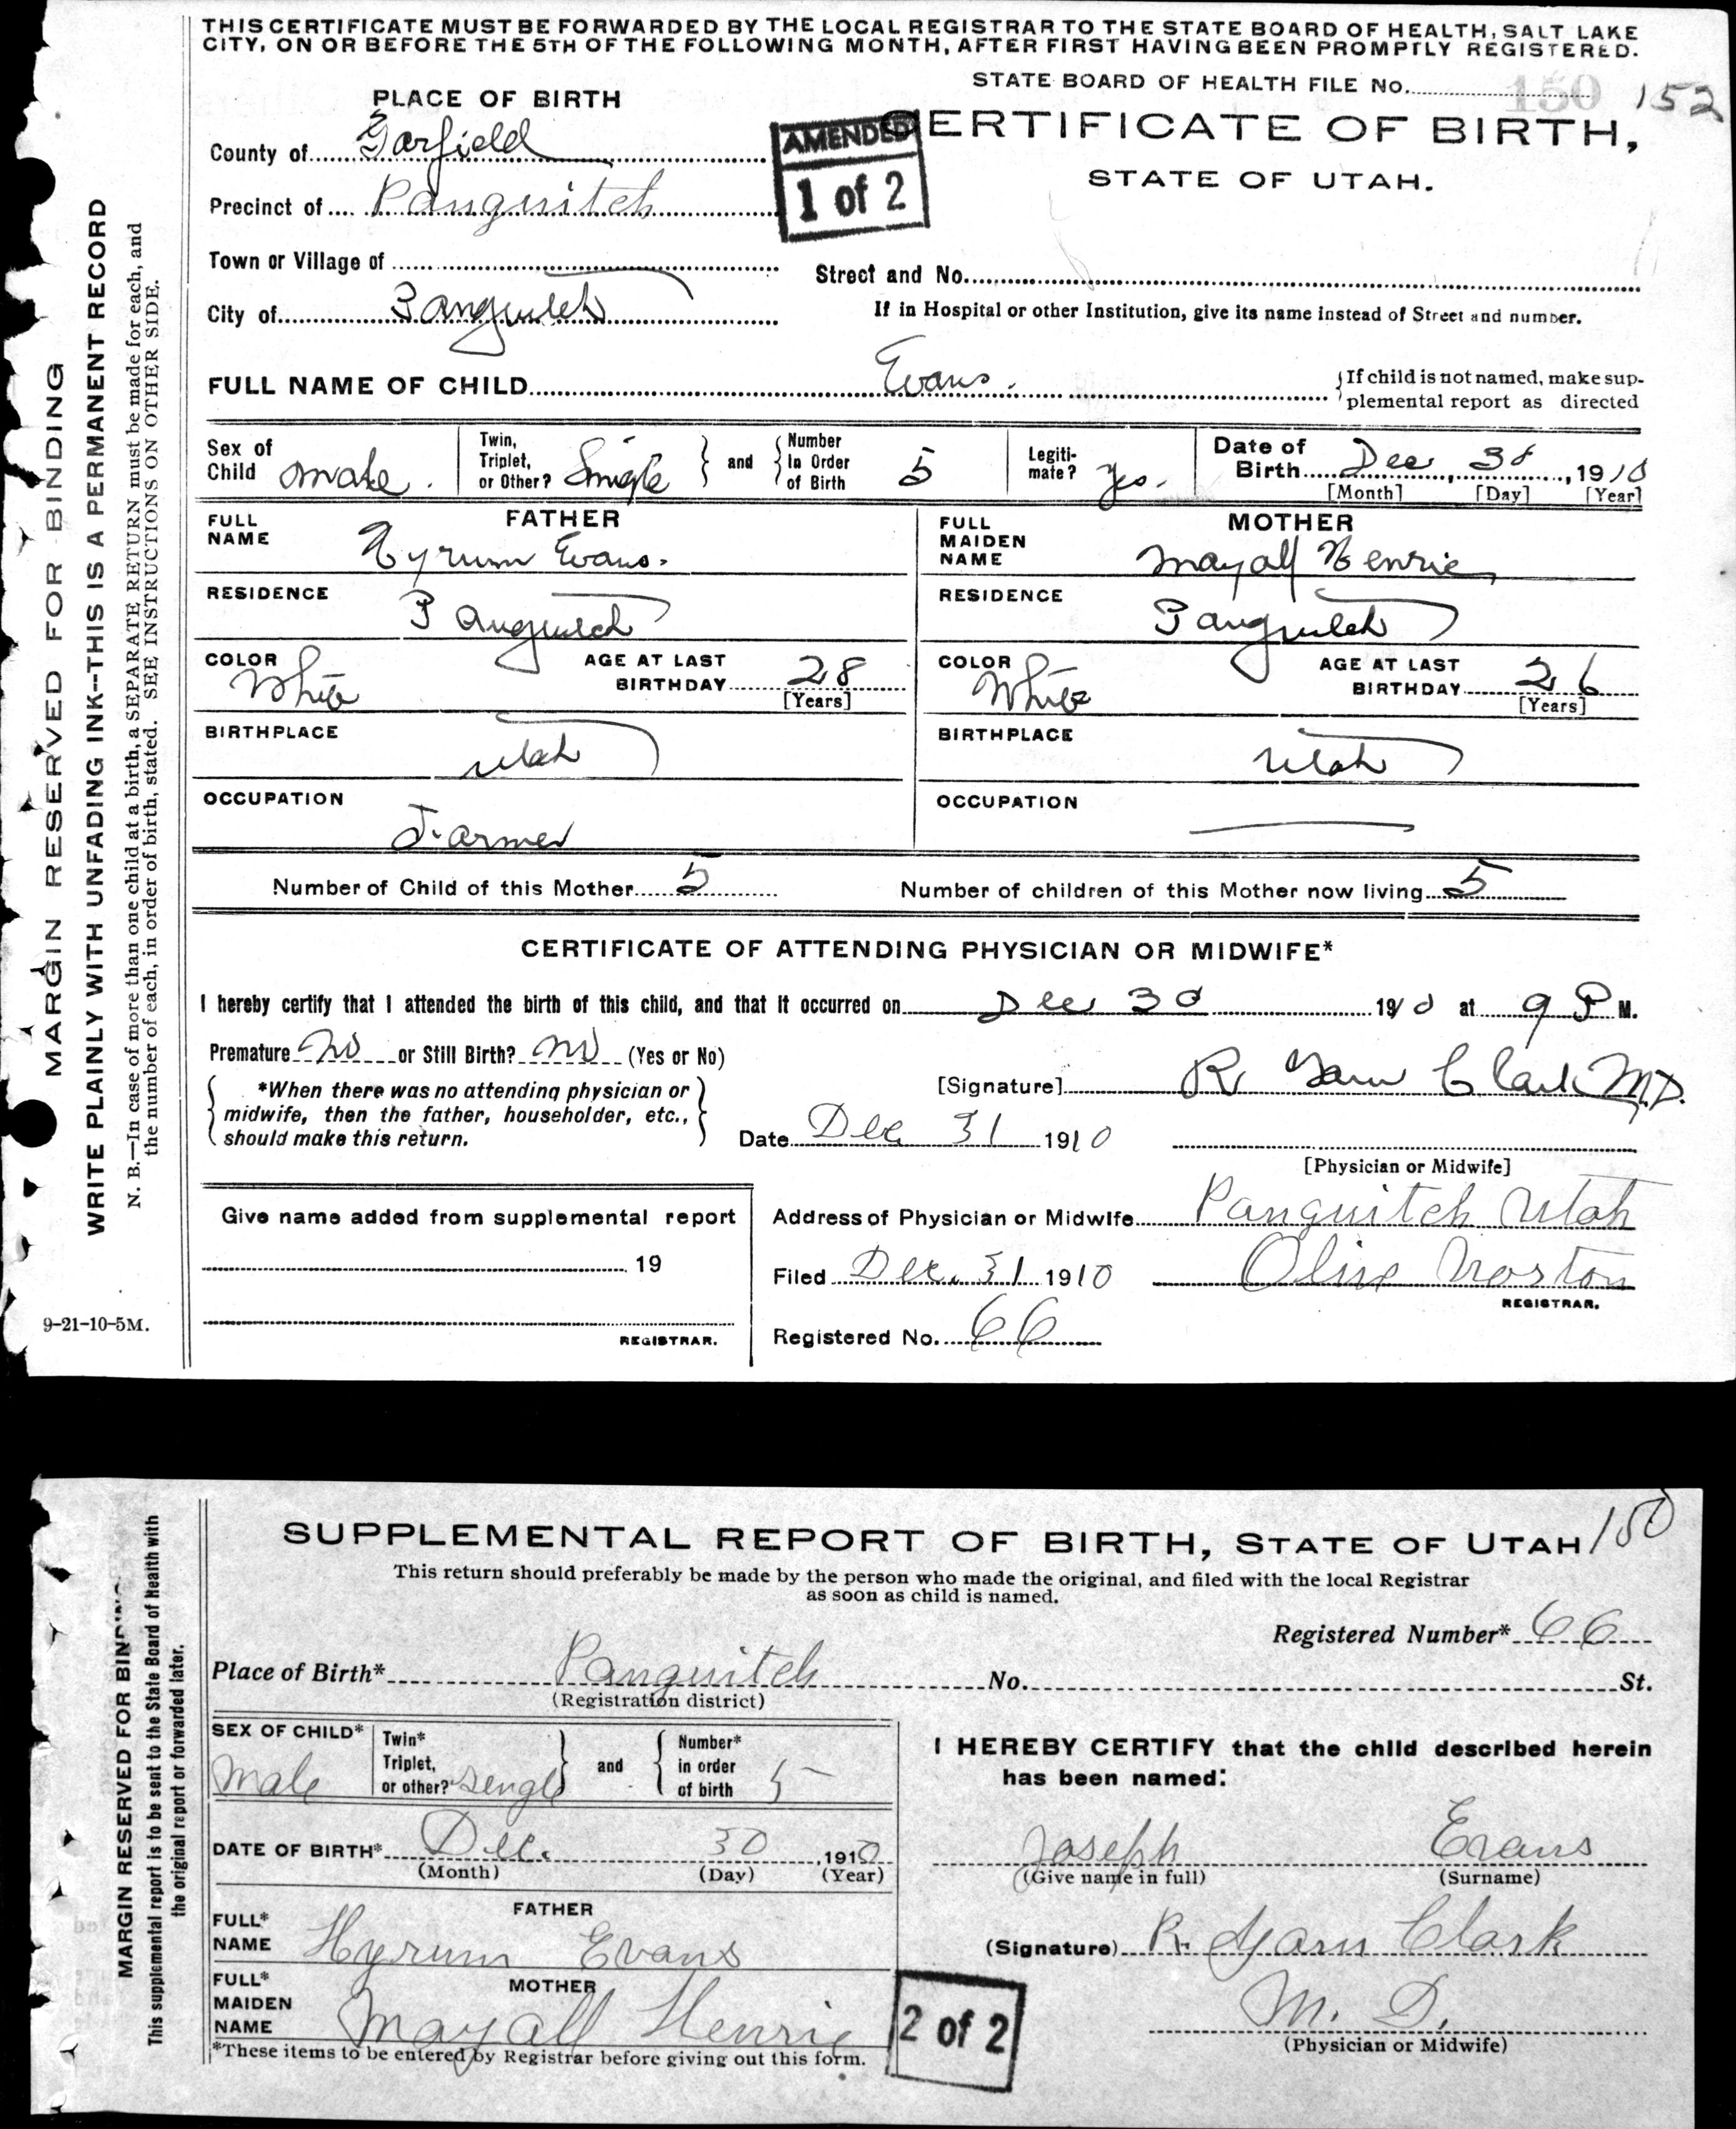 THIS CERTIFICATE MUST BE FORWARDED BY THE LOCAL REGISTRAR TO THE STATE BOARD OF HEALTH, SALT LAKE
CITY, ON OR BEFORE THE 5TH OF THE FOLLOWING MONTH, AFTER FIRST HAVING BEEN PROMPTLY REGISTERED.
STATE BOARD OF HEALTH FILE No. 150 152
PLACE OF BIRTH
CERTIFICATE OF BIRTH,
STATE OF UTAH.
AMENDED
1 of 2
County of Garfield
Precinct of Panguitch
Town or Village of
Street and No.
City of Panguitch
If in Hospital or other Institution, give its name instead of Street and number.
FULL NAME OF CHILD Evans.
If child is not named, make sup-
plemental report as directed
Sex of Child Male.
Twin, Triplet, or Other? Single
and
Number In Order of Birth 5
Legiti-mate? Yes.
Date of Birth Dec 30, 1910
[Month] [Day] [Year]
FATHER
FULL NAME Hyrum Evans.
RESIDENCE Panguitch
COLOR White
AGE AT LAST BIRTHDAY 28
[Years]
BIRTHPLACE Utah
OCCUPATION Farmer
MOTHER
FULL MAIDEN NAME Mayall Henrie
RESIDENCE Panguitch
COLOR White
AGE AT LAST BIRTHDAY 26
[Years]
BIRTHPLACE Utah
OCCUPATION
Number of Child of this Mother 5
Number of children of this Mother now living 5
CERTIFICATE OF ATTENDING PHYSICIAN OR MIDWIFE*
I hereby certify that I attended the birth of this child, and that it occurred on Dec 30 1910 at 9 P M.
Premature No or Still Birth? No (Yes or No)
*When there was no attending physician or
midwife, then the father, householder, etc.,
should make this return.
[Signature] R Garn Clark M.D.
Date Dec 31 1910
[Physician or Midwife]
Give name added from supplemental report
19
REGISTRAR.
Address of Physician or Midwife Panguitch Utah
Filed Dec. 31 1910 Olive Norton
REGISTRAR.
Registered No. 66
MARGIN RESERVED FOR BINDING
WRITE PLAINLY WITH UNFADING INK--THIS IS A PERMANENT RECORD
N. B.—In case of more than one child at a birth, a SEPARATE RETURN must be made for each, and
the number of each, in order of birth, stated. SEE INSTRUCTIONS ON OTHER SIDE.
9-21-10-5M.
SUPPLEMENTAL REPORT OF BIRTH, STATE OF UTAH 150
This return should preferably be made by the person who made the original, and filed with the local Registrar
as soon as child is named.
Registered Number* 66
Place of Birth* Panguitch No. St.
(Registration district)
SEX OF CHILD* Male
Twin* Triplet, or other? Single
and
Number* in order of birth 5
DATE OF BIRTH* Dec. 30, 1910
(Month) (Day) (Year)
FATHER
FULL* NAME Hyrum Evans
MOTHER
FULL* MAIDEN NAME Mayall Henrie
*These items to be entered by Registrar before giving out this form.
I HEREBY CERTIFY that the child described herein
has been named:
Joseph Evans
(Give name in full) (Surname)
(Signature) R. Garn Clark
M. D.
(Physician or Midwife)
2 of 2
MARGIN RESERVED FOR BINDING
This supplemental report is to be sent to the State Board of Health with
the original report or forwarded later.